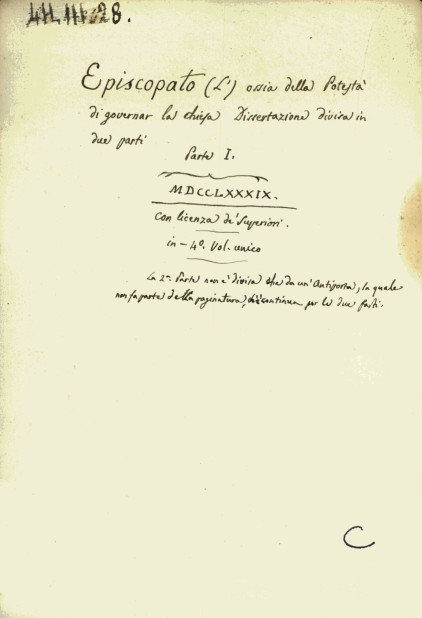 28.
Episcopato (L') ossia della Potestà
di governar la chiesa Dissertazione divisa in
due parti
Parte I.
MDCCLXXXIX.
Con licenza de' Superiori.
in-4º. Vol. unico
La 2ª. Parte non è divisa che da un' Antiporta, la quale
non fa parte della paginatura, che continua per le due parti.
C